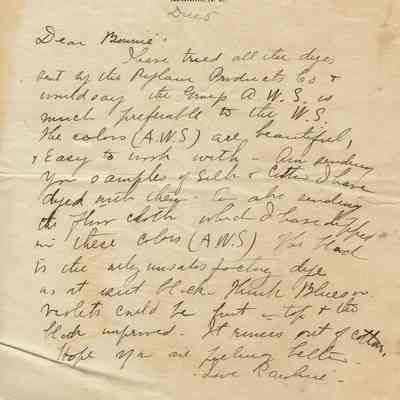 Dyes
Dear Bonnie:
I have tried all the dyes
sent by the Products Co. &
would say the Group A.W.S. is
much preferable to the W.S.
The colors (A.W.S) are beautiful,
& Easy to work with - Am sending
you samples of Silk & Cotton I have
dyed with them. Am also sending
the floss cloth which I have dipped
in these colors (A.W.S) The black
is the only unsatisfactory dye
as it isn't black. Think Blues or
violets could be put on top & the
black improved. It rinses out of cotton.
Hope you are feeling better.
Love